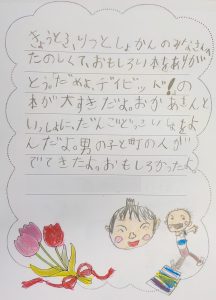 きょうとふりっとしょかんのみなさん
たのしくて、おもしろい本をありが
とう。だめよ、デイビッド!の
本が大すきだよ。おかあさんと
いっしょに、だんごどっこいしょをよ
んだよ。男の子と町の人が
でてきたよ。おもしろかったよ。